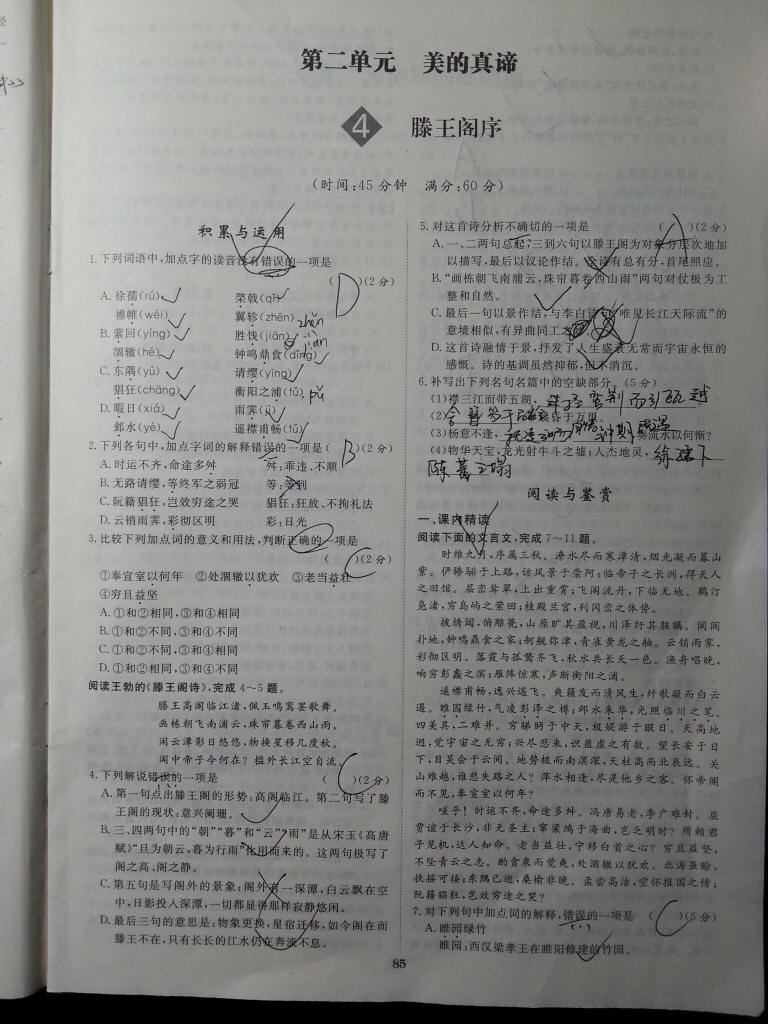 第二单元 美的真谛
4 滕王阁序
(时间:45分钟 满分:60分)
积累与运用
1.下列词语中,加点字的读音没有错误的一项是
( D )(2分)
A.徐孺(rú) 棨戟(qǐ)
襜帷(wéi) 翼轸(zhēn) zhěn
B.萦回(yíng) 胜饯(jiān) jiàn
涸辙(hé) 钟鸣鼎食(dǐng)
C.东隅(yú) 请缨(yīng)
猖狂(chāng) 衡阳之浦(fǔ) pǔ
D.暇日(xiá) 雨霁(jì)
邺水(yè) 遥襟甫畅(fǔ)
2.下列各句中,加点字词的解释错误的一项是( B )(2分)
A.时运不齐,命途多舛 舛:乖违、不顺
B.无路请缨,等终军之弱冠 等:等到
C.阮籍猖狂,岂效穷途之哭 猖狂:狂放、不拘礼法
D.云销雨霁,彩彻区明 彩:日光
3.比较下列加点词的意义和用法,判断正确的一项是
( C )(2分)
①奉宣室以何年 ②处涸辙以犹欢 ③老当益壮
④穷且益坚
A.①和②相同,③和④相同
B.①和②不同,③和④不同
C.①和②不同,③和④相同
D.①和②相同,③和④不同
阅读王勃的《滕王阁诗》,完成4~5题。
滕王高阁临江渚,佩玉鸣鸾罢歌舞。
画栋朝飞南浦云,珠帘暮卷西山雨。
闲云潭影日悠悠,物换星移几度秋。
阁中帝子今何在?槛外长江空自流。
4.下列解说错误的一项是 ( C )(2分)
A.第一句点出滕王阁的形势:高阁临江。第二句写了滕
王阁的现状:意兴阑珊。
B.三、四两句中的“朝”“暮”和“云”“雨”是从宋玉《高唐
赋》“旦为朝云,暮为行雨”化用而来的。这两句极写了
阁之高、阁之静。
C.第五句是写阁外的景象:阁外有一深潭,白云飘在空
中,日影投入深潭,一切都显得那样寂静悠闲。
D.最后三句的意思是:物象更换,星宿迁移,如今阁在而
滕王不在,只有长长的江水仍在奔流不息。
5.对这首诗分析不确切的一项是 ( A )(2分)
A.一、二两句总起,三到六句以滕王阁为对象分层次地加
以描写,最后以议论作结。全诗有总有分,首尾照应。
B.“画栋朝飞南浦云,珠帘暮卷西山雨”两句对仗极为工
整和自然。
C.最后一句以景作结,与李白诗句“唯见长江天际流”的
意境相似,有异曲同工之
D.这首诗融情于景,抒发了人生盛衰无常而宇宙永恒的
感慨。诗的基调虽然抑郁,但不消沉。
6.补写出下列名句名篇中的空缺部分。(5分)
(1)襟三江而带五湖, 控蛮荆而引瓯越
(2) 昏于万里。
(3)杨意不逢, 钟期 奏流水以何惭?
(4)物华天宝,龙光射牛斗之墟;人杰地灵, 徐孺下
陈蕃之榻
阅读与鉴赏
一、课内精读
阅读下面的文言文,完成7~11题。
时维九月,序属三秋。潦水尽而寒潭清,烟光凝而暮山
紫。俨骖騑于上路,访风景于崇阿;临帝子之长洲,得天人
之旧馆。层峦耸翠,上出重霄;飞阁流丹,下临无地。鹤汀
凫渚,穷岛屿之萦回;桂殿兰宫,列冈峦之体势。
披绣闼,俯雕甍,山原旷其盈视,川泽纡其骇瞩。闾阎
扑地,钟鸣鼎食之家;舸舰弥津,青雀黄龙之舳。云销雨霁,
彩彻区明。落霞与孤鹜齐飞,秋水共长天一色。渔舟唱晚,
响穷彭蠡之滨;雁阵惊寒,声断衡阳之浦。
遥襟甫畅,逸兴遄飞。爽籁发而清风生,纤歌凝而白云
遏。睢园绿竹,气凌彭泽之樽;邺水朱华,光照临川之笔。
四美具,二难并。穷睇眄于中天,极娱游于暇日。天高地
迥,觉宇宙之无穷;兴尽悲来,识盈虚之有数。望长安于日
下,目吴会于云间。地势极而南溟深,天柱高而北辰远。关
山难越,谁悲失路之人?萍水相逢,尽是他乡之客。怀帝阍
而不见,奉宣室以何年?
嗟乎!时运不齐,命途多舛。冯唐易老,李广难封。屈
贾谊于长沙,非无圣主;窜梁鸿于海曲,岂乏明时?所赖君
子见机,达人知命。老当益壮,宁移白首之心?穷且益坚,
不坠青云之志。酌贪泉而觉爽,处涸辙以犹欢。北海虽赊,
扶摇可接;东隅已逝,桑榆非晚。孟尝高洁,空怀报国之情;
阮籍猖狂,岂效穷途之哭?
7.对下列句中加点词的解释,错误的一项是 ( C )(5分)
A.睢园绿竹
睢园:西汉梁孝王在睢阳修建的竹园。
85